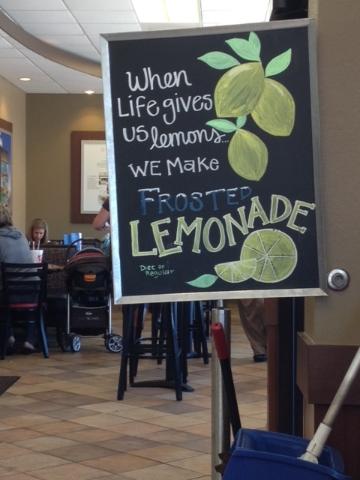 When
Life gives
us lemons...
we make
FROSTED
LEMONADE
Diet or
Regular